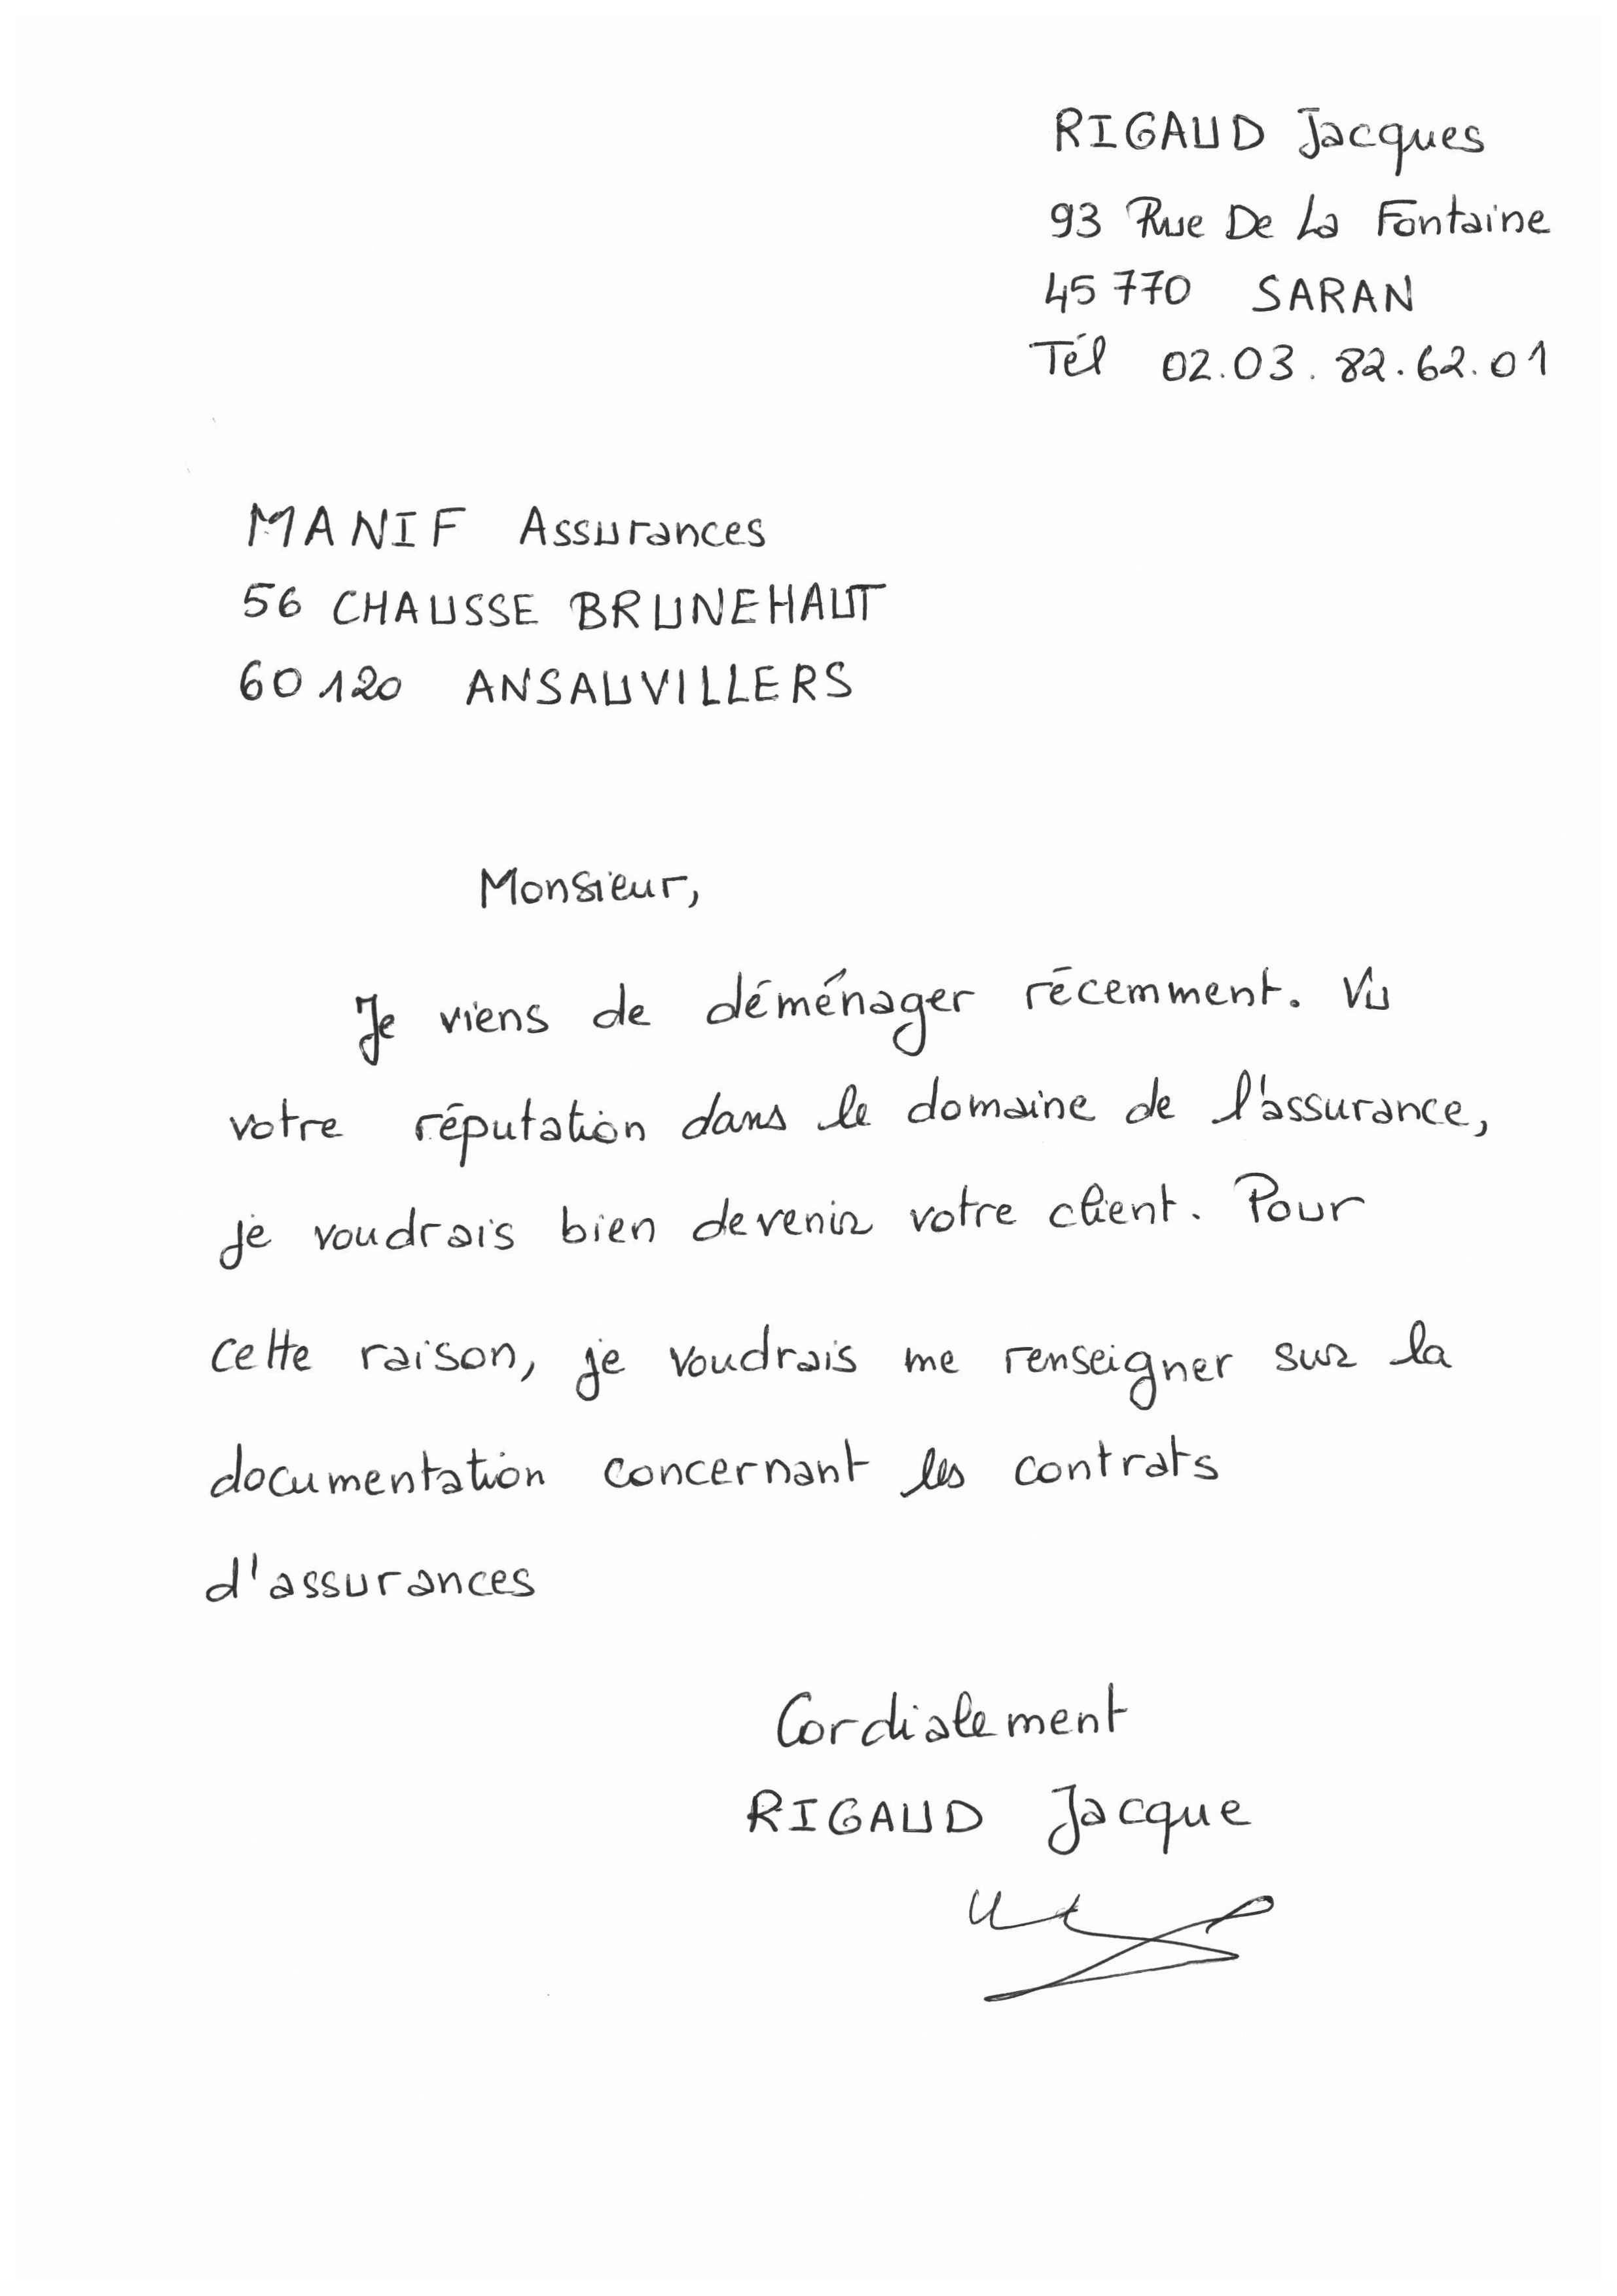 RIGAUD Jacques
93 Rue De La Fontaine
45 770 SARAN
Tél 02.03.82.62.01
MANIF Assurances
56 CHAUSSE BRUNEHAUT
60 120 ANSAUVILLERS
Monsieur,
Je viens de déménager récemment. Vu
votre réputation dans le domaine de l'assurance,
je voudrais bien devenir votre client. Pour
cette raison, je voudrais me renseigner sur la
documentation concernant les contrats
d'assurances
Cordialement
RIGAUD Jacque